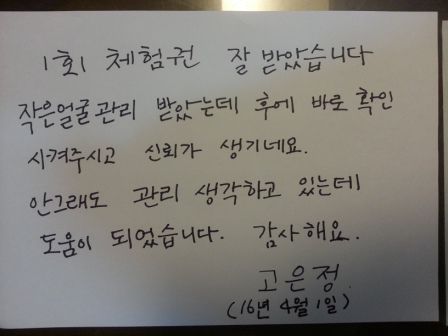 1회 체험권 잘 받았습니다
작은얼굴관리 받았는데 후에 바로 확인
시켜주시고 신뢰가 생기네요.
안그래도 관리 생각하고 있는데
도움이 되었습니다. 감사해요.
고은정
(16년 4월 1일)